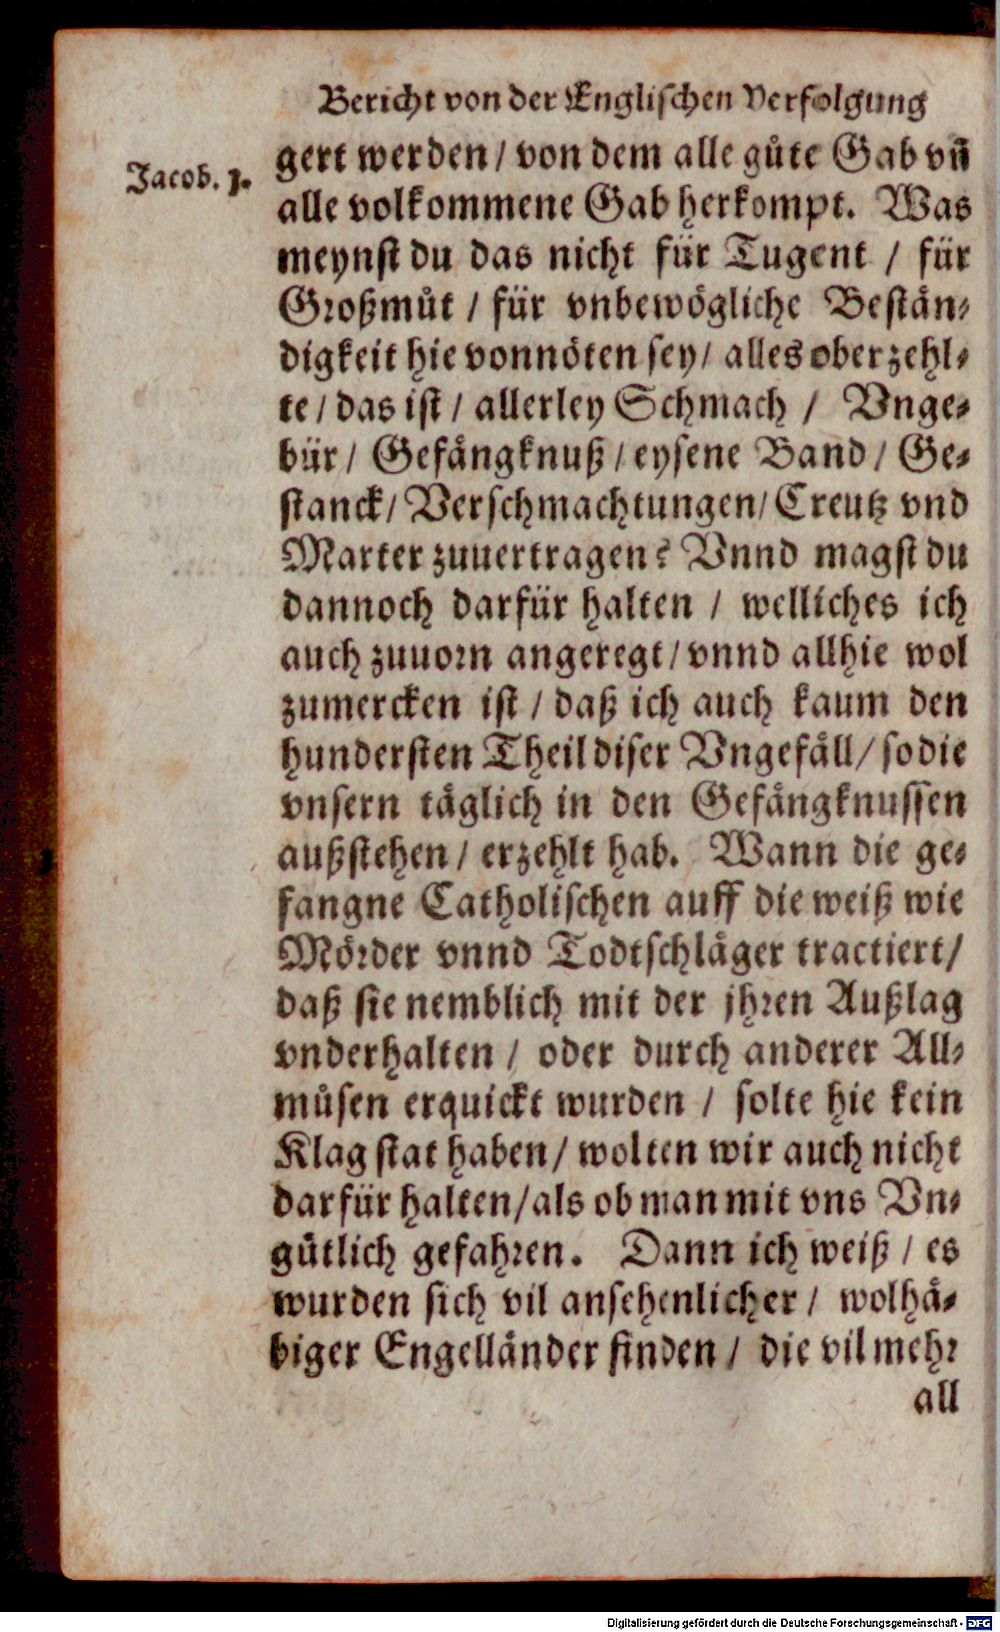 Bericht von der Englischen Verfolgung
Jacob. 1.
gert werden / von dem alle gůte Gab vñ
alle volkommene Gab herkompt. Was
meynst du das nicht für Tugent / für
Großmůt / für vnbewögliche Bestän-
digkeit hie vonnöten sey / alles oberzehl-
te / das ist / allerley Schmach / Vnge-
bür / Gefängknuß / eysene Band / Ge-
stanck / Verschmachtungen / Creutz vnd
Marter zuuertragen? Vnnd magst du
dannoch darfür halten / welliches ich
auch zuuorn angeregt / vnnd allhie wol
zumercken ist / daß ich auch kaum den
hundersten Theil diser Vngefäll / so die
vnsern täglich in den Gefängknussen
außstehen / erzehlt hab. Wann die ge-
fangne Catholischen auff die weiß wie
Mörder vnnd Todtschläger tractiert /
daß sie nemblich mit der jhren Außlag
vnderhalten / oder durch anderer All-
můsen erquickt wurden / solte hie kein
Klag stat haben / wolten wir auch nicht
darfür halten / als ob man mit vns Vn-
gůtlich gefahren. Dann ich weiß / es
wurden sich vil ansehenlicher / wolhä-
biger Engelländer finden / die vil mehr
all
Digitalisierung gefördert durch die Deutsche Forschungsgemeinschaft - DFG